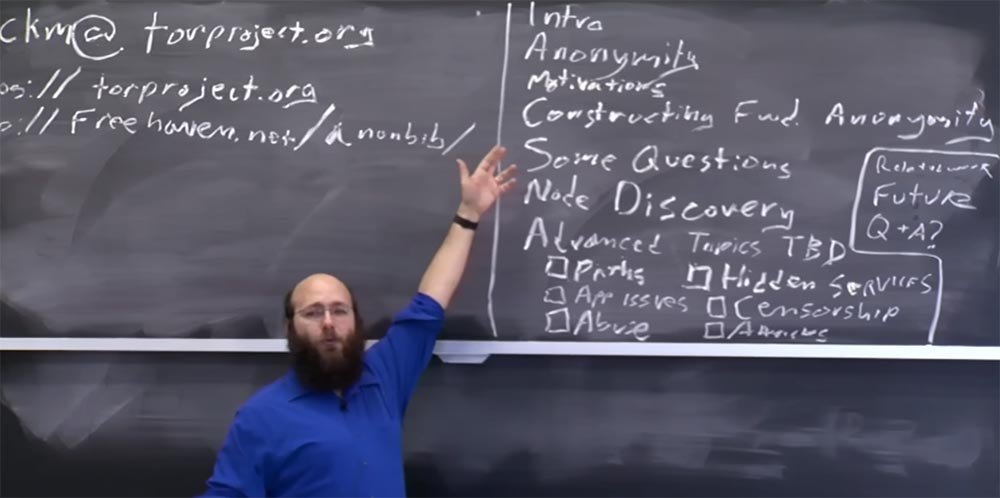 ckm@torproject.org
ps:// torproject.org
p://Freehaven.net/anonbib/
Intro
Anonymity
Motivations
Constructing Fwd. Anonymity
Some Questions
Node Discovery
Advanced Topics TBD
□ Paths □ Hidden Services
□ App issues □ Censorship
□ Abuse □ Attacks
Related work
Future
Q+A?